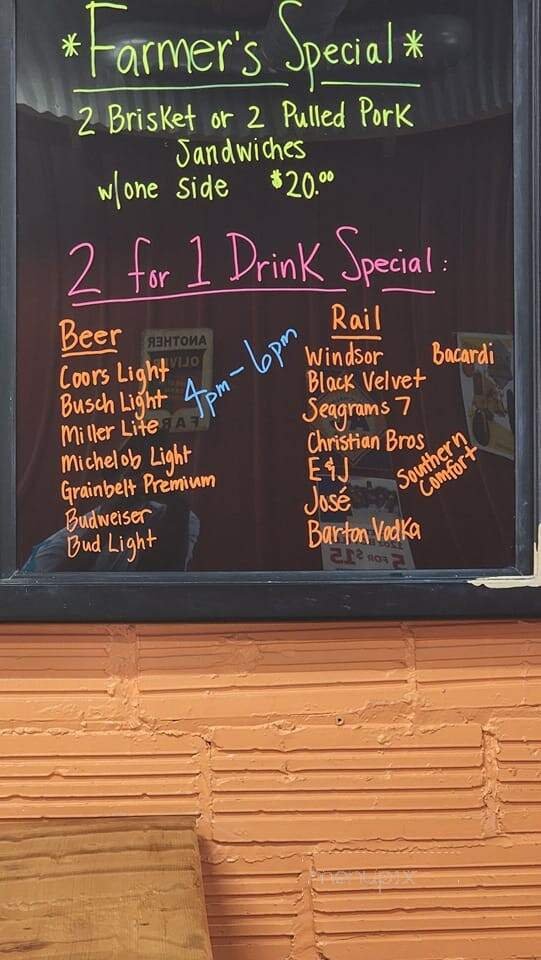 *Farmer's Special*
2 Brisket or 2 Pulled Pork
Sandwiches
w/one side $20.00
2 for 1 Drink Special:
4pm-6pm
Beer
Coors Light
Busch Light
Miller Lite
Michelob Light
Grainbelt Premium
Budweiser
Bud Light
Rail
Windsor
Black Velvet
Seagrams 7
Christian Bros
E&J
José
Barton Vodka
Bacardi
Southern
Comfort
ANOTHER
OLIV
FA
5 FOR $15
menupix